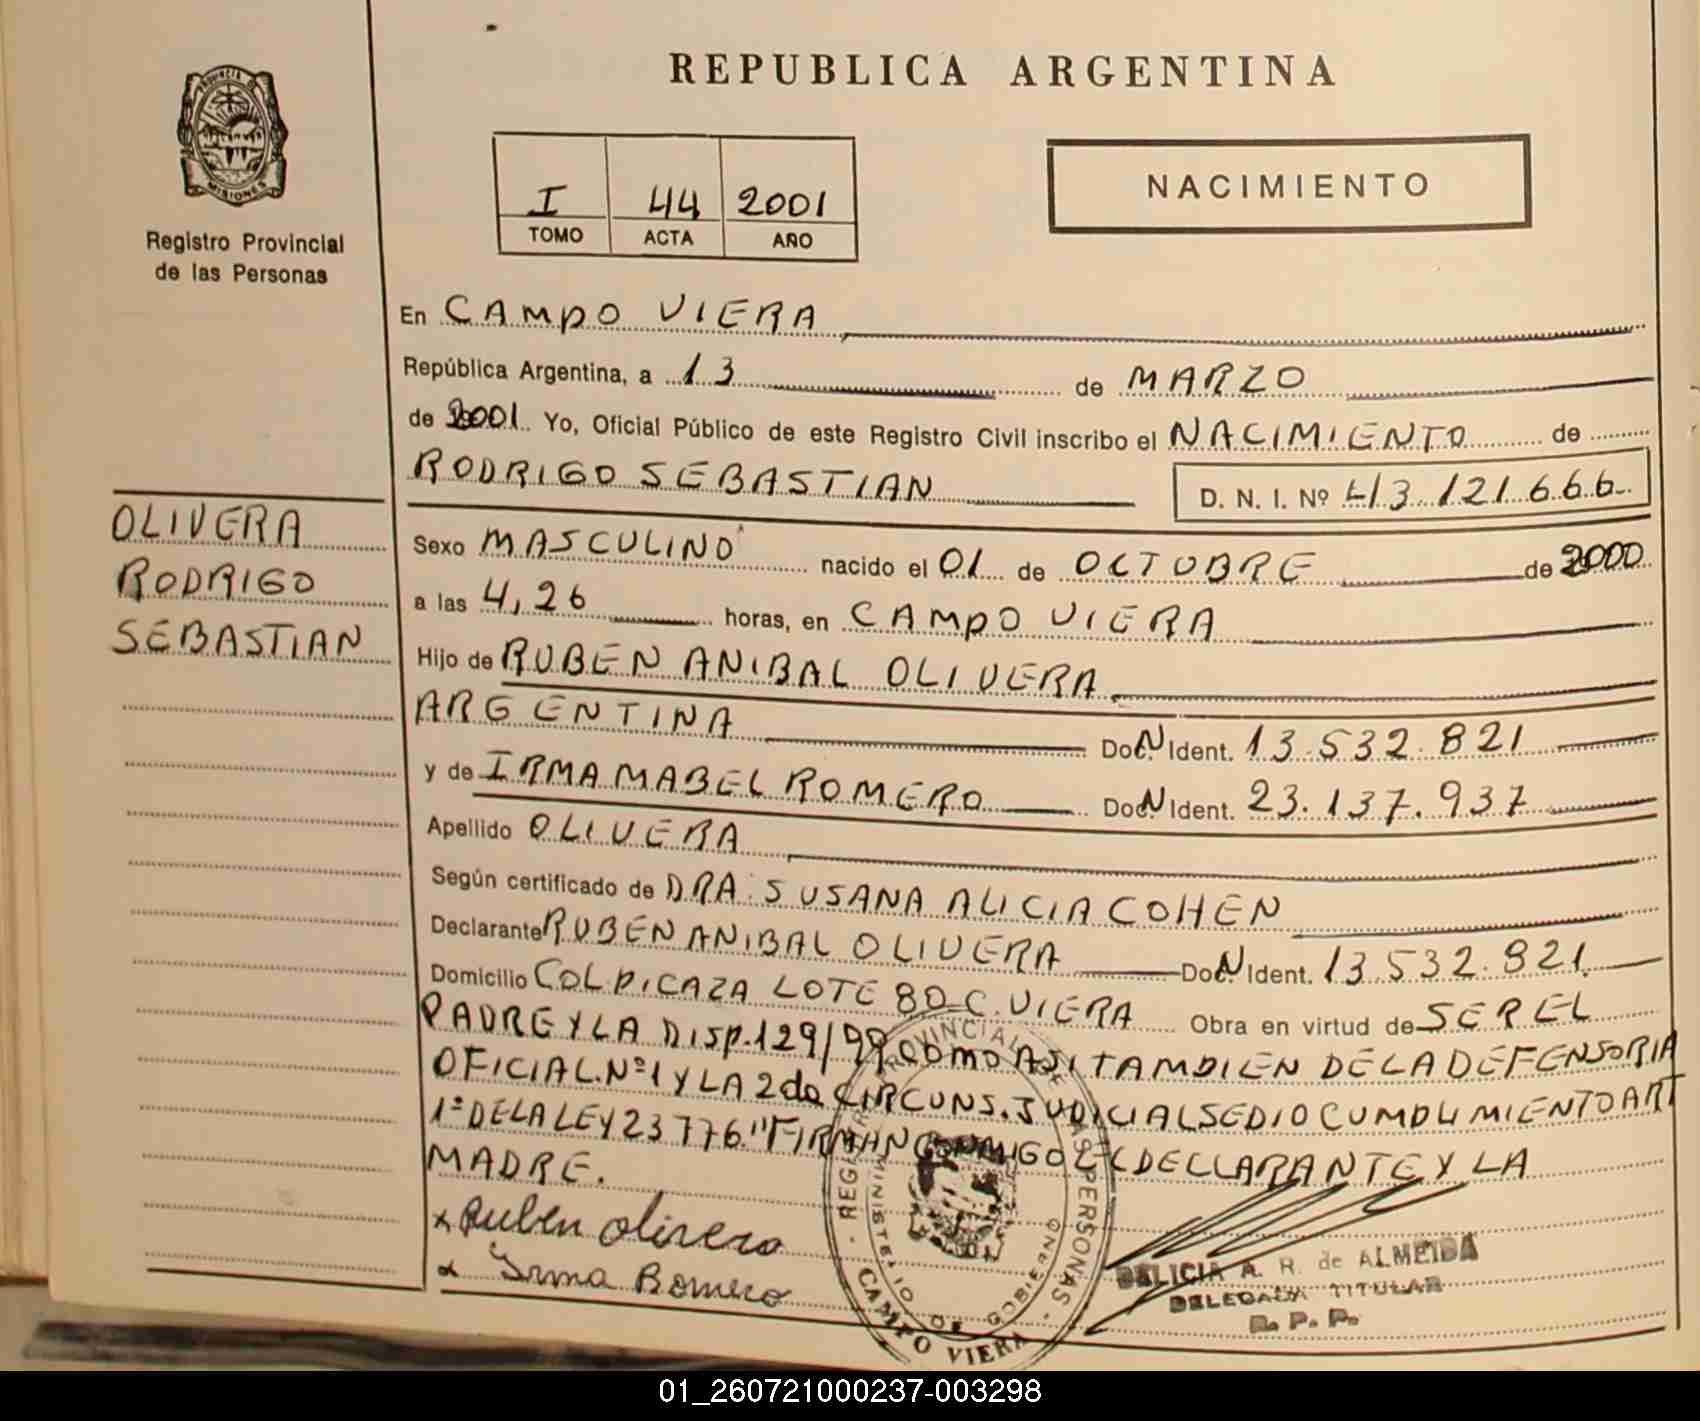 REPUBLICA ARGENTINA
PROVINCIA DE
MISIONES
Registro Provincial
de las Personas
I 44 2001
TOMO ACTA AÑO
NACIMIENTO
En CAMPO VIERA
República Argentina, a 13 de MARZO
de 2001 Yo, Oficial Público de este Registro Civil inscribo el NACIMIENTO de
RODRIGO SEBASTIAN D. N. I. Nº 43.121.666
OLIVERA
RODRIGO
SEBASTIAN
Sexo MASCULINO nacido el 01 de OCTUBRE de 2000
a las 4,26 horas, en CAMPO VIERA
Hijo de RUBEN ANIBAL OLIVERA
ARGENTINA Doc. N Ident. 13.532.821
y de IRMA MABEL ROMERO Doc. N Ident. 23.137.937
Apellido OLIVERA
Según certificado de DRA. SUSANA ALICIA COHEN
Declarante RUBEN ANIBAL OLIVERA Doc. N Ident. 13.532.821
Domicilio COL. PICAZA LOTE 80 C. VIERA Obra en virtud de SER EL
PADRE Y LA DISP. 129/99 COMO ASI TAMBIEN DE LA DEFENSORIA
OFICIAL Nº 1 Y LA 2da CIRCUNS. JUDICIAL SE DIO CUMPLIMIENTO ART
1º DE LA LEY 23776." FIRMAN CONMIGO EL DECLARANTE Y LA
MADRE.
x Ruben olivera
x Irma Romero
REGISTRO PROVINCIAL DE LAS PERSONAS
MINISTERIO DE GOBIERNO
CAMPO VIERA
DELICIA A. R. de ALMEIDA
DELEGADA TITULAR
R. P. P.
01_260721000237-003298